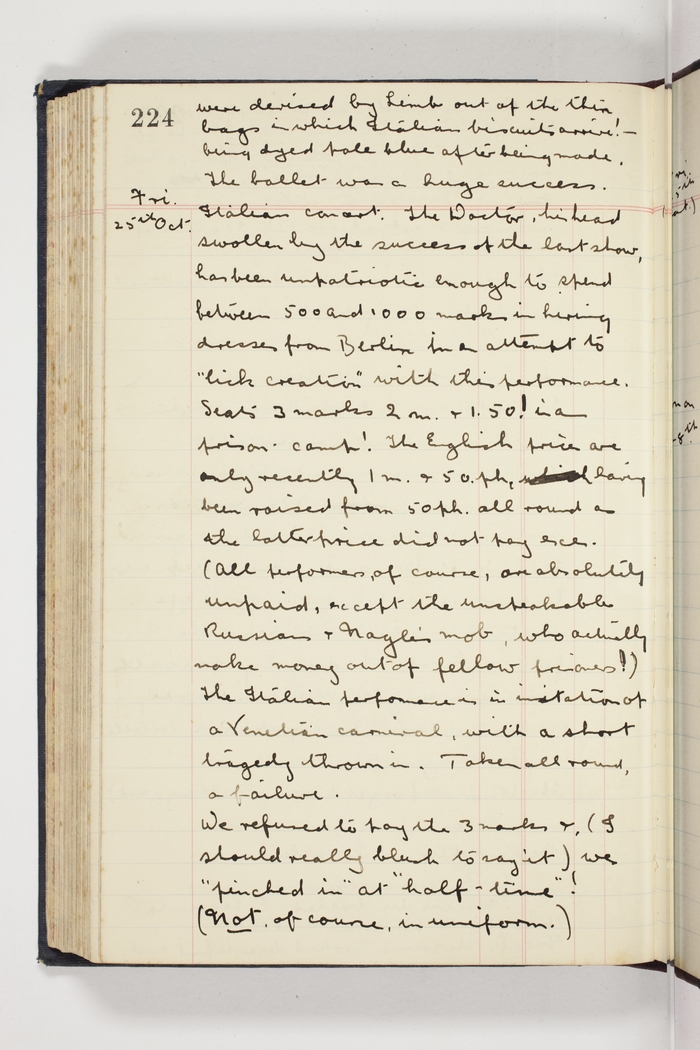 224
were devised by Limb out of the thin
bags in which Italian biscuits arrive! -
being dyed pale blue after being made.
The ballet was a huge success.
Fri.
25th Oct.
Italian concert. The Doctor, his head
swollen by the success of the last show,
has been unpatriotic enough to spend
between 500 and 1000 marks in hiring
dresses from Berlin in an attempt to
"lick creation" with this performance.
Seats 3 marks 2 m. & 1.50! in a
prison-camp! The English price are
only recently 1 m. & 50. ph, having
been raised from 50ph. all round as
the latter price did not pay exes.
(All performers, of course, are absolutely
unpaid, except the unspeakable
Russians & Nagle's mob, who actually
make money out of fellow prisoners!)
The Italian performance is in imitation of
a Venetian carnival, with a short
tragedy thrown in. Taken all round,
a failure.
We refused to pay the 3 marks &, (I
should really blush to say it) we
"pinched in" at "half-time"!
(Not, of course, in uniform.)